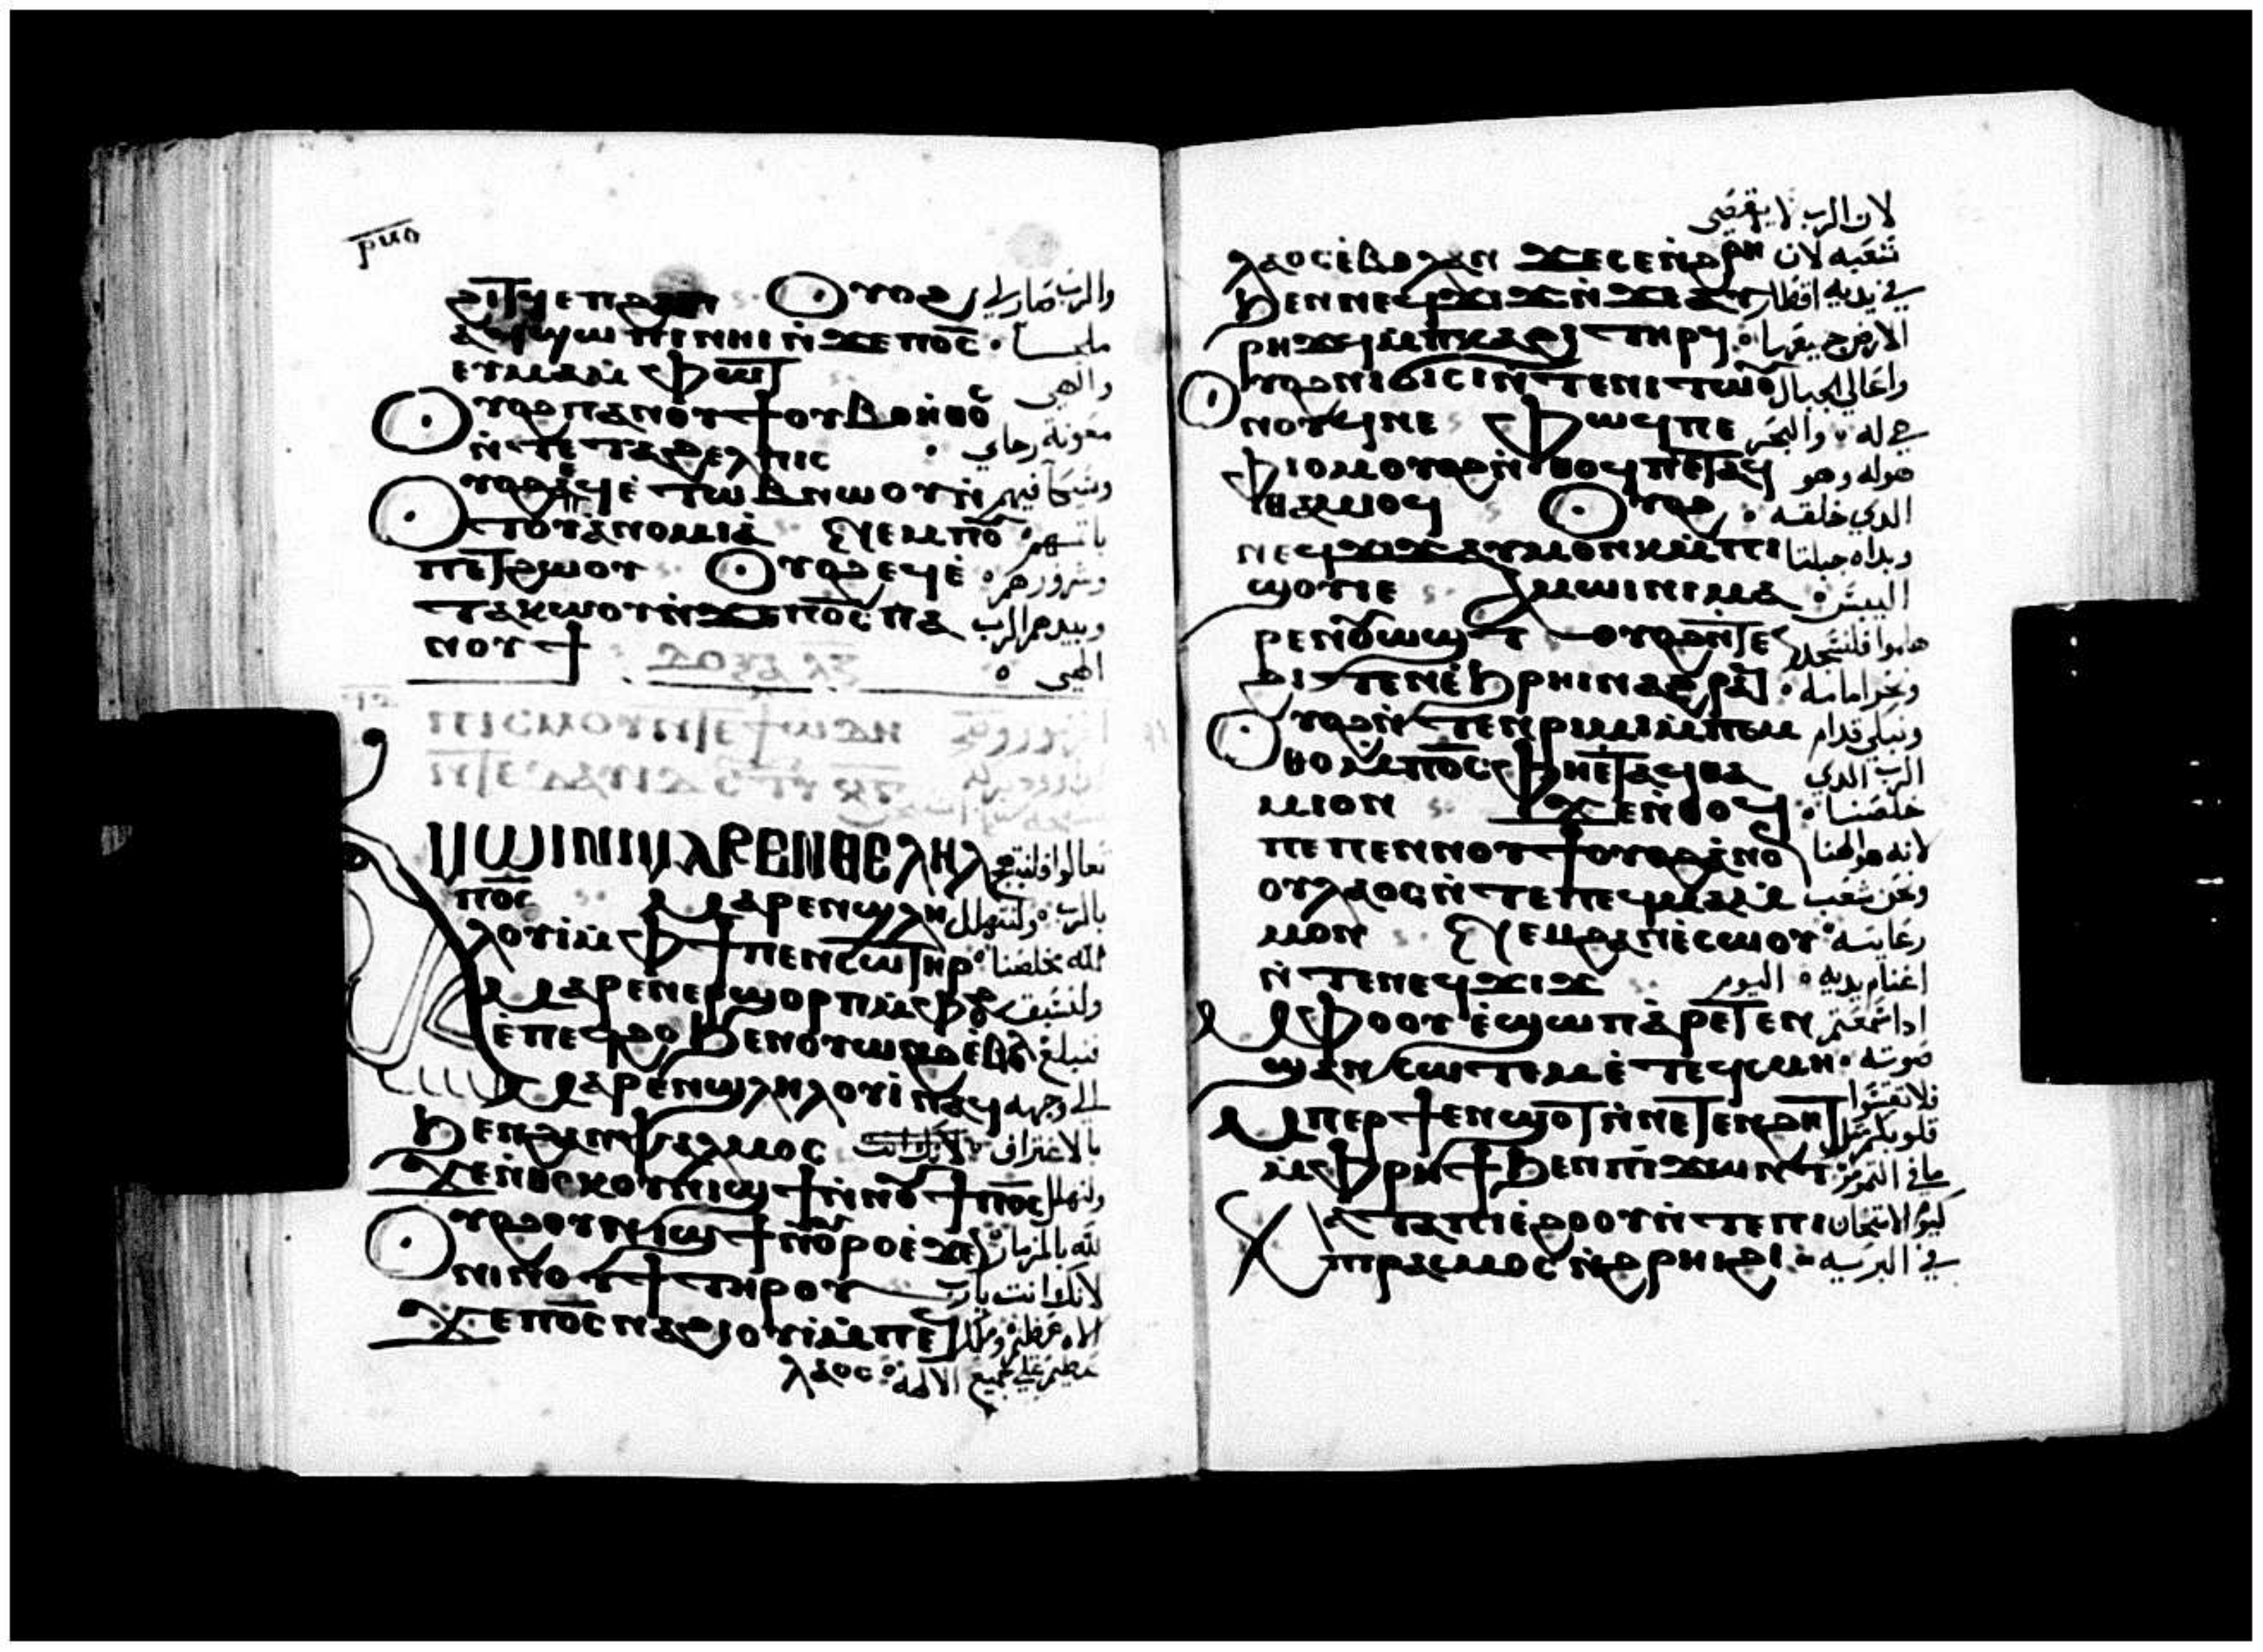 ⲣⲙⲑ
ϩⲓⲧϥ ⲉⲡϩⲁⲡ Ⲟⲩⲟϩ والرب صار لي
ⲁϥϣⲱⲡⲓ ⲛⲏⲓ ⲛ̀ϫⲉ ⲡⲟ̅ⲥ̅ ملجا
ⲉⲩⲙⲁⲙ̀ⲫⲱⲧ والهي
Ⲟⲩⲟϩ ⲡⲁⲛⲟⲩϯ ⲟⲩⲃⲟⲏ̀ⲑⲟⲥ
ⲛ̀ⲧⲉ ⲧⲁϩⲉⲗⲡⲓⲥ معونة رجاي
Ⲟⲩⲟϩ ⲉϥⲉ̀ⲧⲱⲃ ⲛⲱⲟⲩ ⲛ̀
ⲧⲟⲩⲁ̀ⲛⲟⲙⲓⲁ̀ ⲛⲉⲙ ⲡⲟⲩ باثمهم
ⲡⲉⲧϩⲱⲟⲩ Ⲟⲩⲟϩ ⲉϥⲉ̀ وشرورهم
ⲧⲁⲕⲱⲟⲩ ⲛ̀ϫⲉ ⲡⲟ̅ⲥ̅ ⲡⲁ ويبيدهم الرب
ⲛⲟⲩϯ الهي
ⲁⲙⲱⲓⲛⲓ ⲙⲁⲣⲉⲛⲑⲉⲗⲏⲗ تعالوا فلنبتهج
ⲡⲟ̅ⲥ̅ ⲙⲁⲣⲉⲛϣⲗⲏ بالرب ولنتهلل
ⲗⲟⲩⲓ̀ ⲙ̀ⲫϯ ⲡⲉⲛⲥⲱⲧⲏⲣ لله مخلصنا
ⲙⲁⲣⲉⲛⲉⲣϣⲟⲣⲡ ⲙ̀ⲫⲟϩ ولنسبق
ⲉ̀ⲡⲉϥϩⲟ ϧⲉⲛ ⲟⲩⲱⲛϩ ⲉ̀ⲃⲟⲗ
ⲙⲁⲣⲉⲛϣⲗⲏⲗⲟⲩⲓ̀ ⲛⲁϥ الي وجهه
ϧⲉⲛ ϩⲁⲛⲯⲁⲗⲙⲟⲥ بالاعتراف
ϫⲉ ⲛ̀ⲑⲟⲕ ⲟⲩⲛⲓϣϯ ⲛ̀ⲛⲟⲩϯ ⲡⲟ̅ⲥ̅ ولنهلل
Ⲟⲩⲟϩ ⲟⲩⲛⲓϣϯ ⲛ̀ⲟⲩⲣⲟ ⲉ̀ϫⲉⲛ لله بالمزمار
ⲛⲓⲛⲟⲩϯ ⲧⲏⲣⲟⲩ لانك انت يارب
ϫⲉ ⲡⲟ̅ⲥ̅ ⲛⲁϩⲓⲟⲩⲓ̀ ⲙ̀ⲡⲉϥ الاه عظيم وملك
ⲗⲁⲟⲥ عظيم علي جميع الالهة
لان الرب لا يقصي
ⲗⲁⲟⲥ ⲉ̀ⲃⲟⲗ ⲁⲛ ϫⲉ ⲥⲉⲛ̀ϩⲣⲏⲓ شعبه لان
ϧⲉⲛ ⲛⲉϥϫⲓϫ ⲛ̀ϫⲉ ⲁⲩ في يديه اقطار
ⲣⲏϫϥ ⲙ̀ⲡⲕⲁϩⲓ ⲧⲏⲣϥ الارض جميعها
Ⲟⲩⲟϩ ⲛⲓϭⲓⲥⲓ ⲛ̀ⲧⲉ ⲛⲓⲧⲱⲟⲩ واعالي الجبال
ⲛⲟⲩϥ ⲛⲉ Ⲫⲱϥ ⲡⲉ هي له والبحر
ⲫⲓⲟⲙ ⲟⲩⲟϩ ⲛ̀ⲑⲟϥ ⲡⲉⲧⲁϥ هو له وهو
ⲑⲁⲙⲓⲟϥ Ⲟⲩⲟϩ الدي خلقه
ⲛⲉϥϫⲓϫ ⲁⲩⲙⲟⲛⲕ ⲙ̀ⲡⲓ ويداه جبلتا
ϣⲟⲩⲓⲉ Ⲁⲙⲱⲓⲛⲓ ⲙⲁ اليبس
ⲣⲉⲛⲟⲩⲱϣⲧ ⲟⲩⲟϩ ⲛ̀ⲧⲉⲛ هلموا فلنسجد
ϩⲓⲧⲉⲛ ⲉ̀ϧⲣⲏⲓ ⲛⲁϩⲣⲁϥ ونخر امامه
Ⲟⲩⲟϩ ⲛ̀ⲧⲉⲛⲣⲓⲙⲓ ⲙ̀ⲡⲉⲙ ونبكي قدام
ⲑⲟ ⲙ̀ⲡⲟ̅ⲥ̅ ⲫⲏⲉⲧⲁϥⲑⲁ الرب الدي
ⲙⲓⲟⲛ ϫⲉ ⲛ̀ⲑⲟϥ خلصنا
ⲡⲉ ⲡⲉⲛⲛⲟⲩϯ ⲟⲩⲟϩ ⲁ̀ⲛⲟⲛ لانه هو الهنا
ⲟⲩⲗⲁⲟⲥ ⲛ̀ⲧⲉ ⲡⲉϥⲙⲁⲙ̀ ونحن شعب
ⲙⲟⲛⲓ ⲛⲉⲙ ϩⲁⲛⲉ̀ⲥⲱⲟⲩ رعايته
ⲛ̀ⲧⲉ ⲛⲉϥϫⲓϫ غنم يديه اليوم
ⲙ̀ⲫⲟⲟⲩ ⲉ̀ϣⲱⲡ ⲁ̀ⲣⲉⲧⲉⲛ ادا سمعتم
ϣⲁⲛⲥⲱⲧⲉⲙ ⲉ̀ⲧⲉϥⲥⲙⲏ صوته
ⲙ̀ⲡⲉⲣϯⲉⲛϣⲟⲧ ⲛ̀ⲛⲉⲧⲉⲛϩⲏⲧ فلا تقسوا
ⲙ̀ⲫⲣⲏϯ ϧⲉⲛ ⲡⲓϫⲱⲛⲧ قلوبكم مثل
ⲕⲁⲧⲁ ⲡⲓⲉ̀ϩⲟⲟⲩ ⲛ̀ⲧⲉ ⲡⲓ كيوم الامتحان
ⲡⲓⲣⲁⲥⲙⲟⲥ ⲛ̀ϩⲣⲏⲓ ϩⲓ في البرية